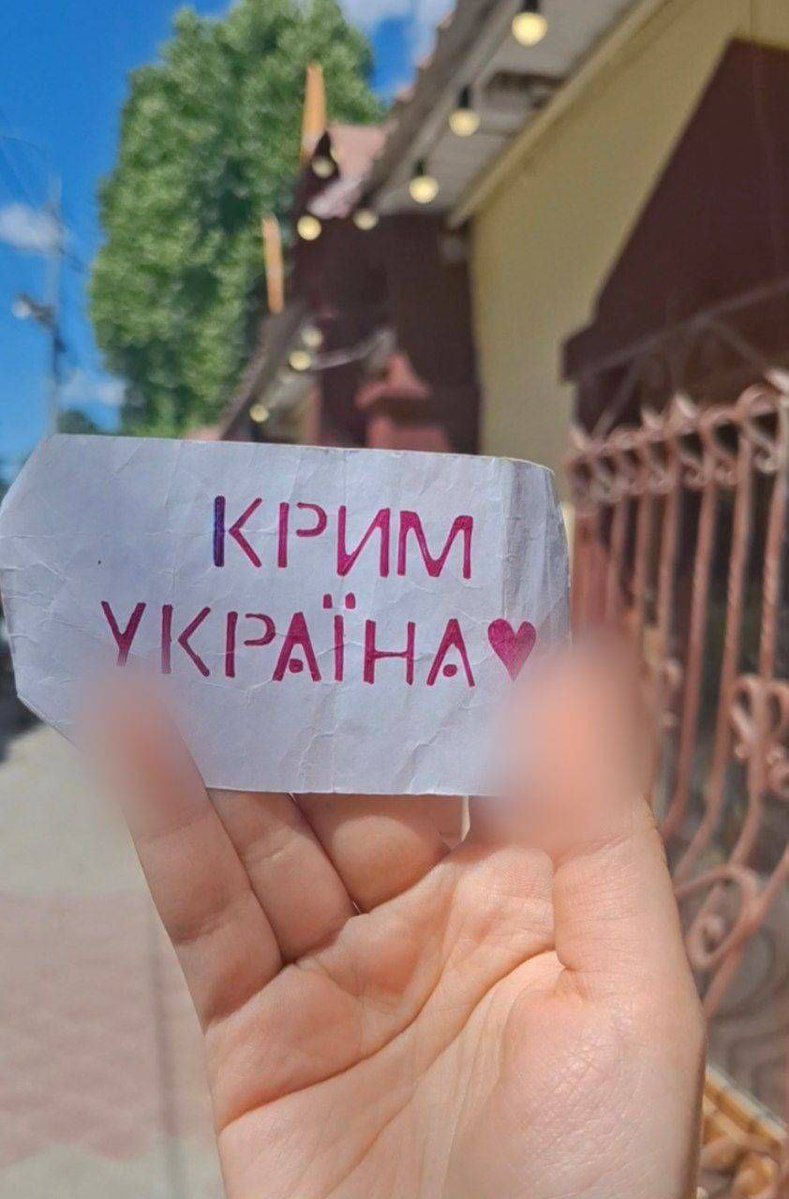 КРИМ
УКРАЇНА♥